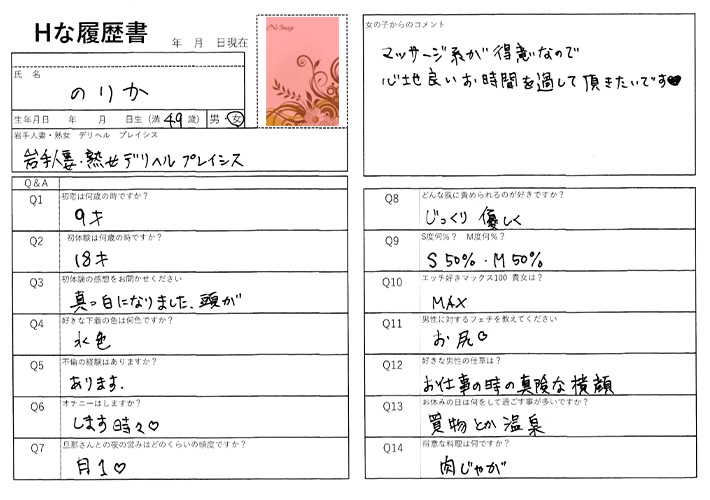 Hな履歴書
年 月 日現在
No Image
氏 名
のりか
生年月日 年 月 日生 (満 49 歳) 男・女
岩手人妻・熟女 デリヘル プレイシス
岩手人妻・熟女デリヘル プレイシス
女の子からのコメント
マッサージ系が得意なので
心地良いお時間を過して頂きたいです♥
Q&A
Q1 初恋は何歳の時ですか?
9才
Q2 初体験は何歳の時ですか?
18才
Q3 初体験の感想をお聞かせください
真っ白になりました、頭が
Q4 好きな下着の色は何色ですか?
水色
Q5 不倫の経験はありますか?
あります.
Q6 オナニーはしますか?
します時々♡
Q7 旦那さんとの夜の営みはどのくらいの頻度ですか?
月1♡
Q8 どんな風に責められるのが好きですか?
じっくり 優しく
Q9 S度何%? M度何%?
S 50%・M 50%
Q10 エッチ好きマックス100 貴女は?
MAX
Q11 男性に対するフェチを教えてください
お尻♡
Q12 好きな男性の仕草は?
お仕事の時の真険な横顔
Q13 お休みの日は何をして過ごす事が多いですか?
買物とか温泉
Q14 得意な料理は何ですか?
肉じゃが